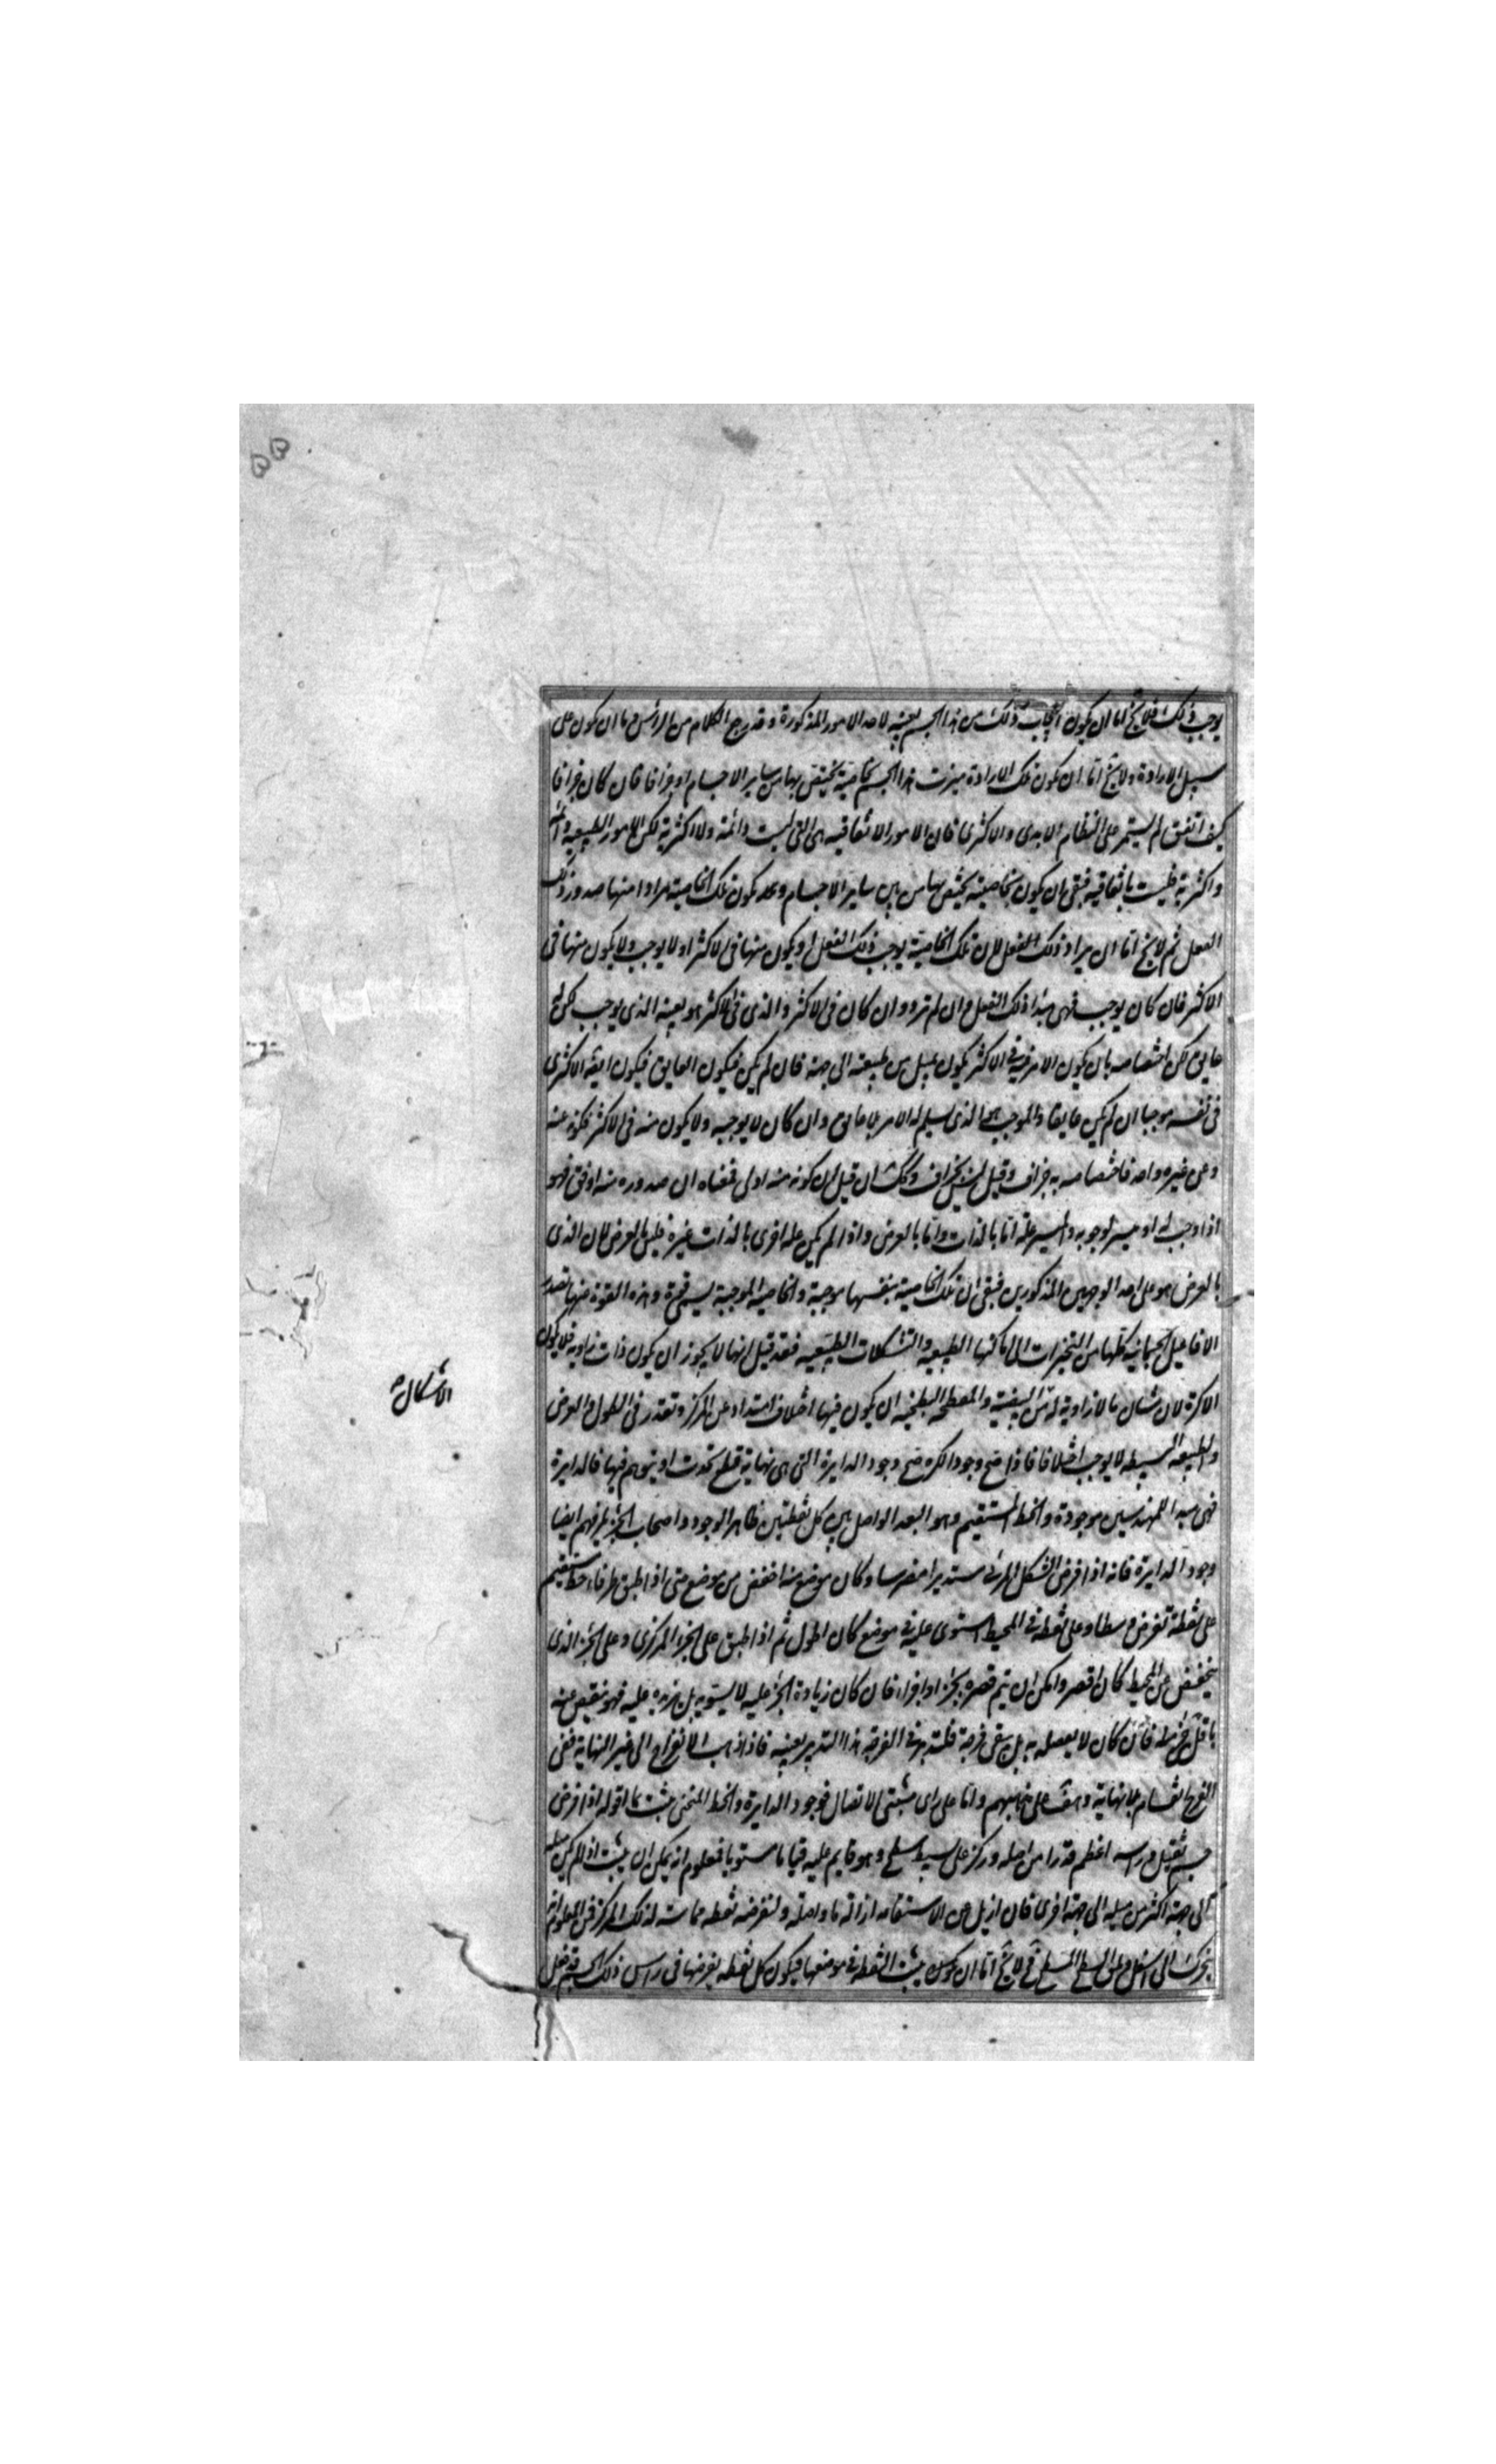 ٥٥
يوجب ذلك فلا يخ اما ان يكون ايجاب ذلك من هذا الجسم بعينه لاحد الامور المذكورة وقد رجع الكلام من الرأس واما ان يكون على
سبيل الارادة ولا يخ اما ان يكون تلك الارادة ميزت هذا الجسم بخاصية يختص بها من ساير الاجسام او جزافا فان كان جزافا
كيف اتفق لم يستمر على النظام الابدى والاكثرى فان الامور الاتفاقيه هى التى ليست دائمة ولا اكثرية لكن الامور الطبيعيه دائمة
واكثرية فليست باتفاقيه فبقى ان يكون بخاصية يختص بها من بين ساير الاجسام وعد يكون تلك الخاصية مرادا منها صدور ذلك
الفعل ثم لا يخ اما ان يراد ذلك الفعل لان تلك الخاصية يوجب ذلك الفعل او يكون منها فى الاكثر او لا يوجب ولا يكون منها فى
الاكثر فان كان يوجب فهى مبدأ ذلك الفعل وان لم ترد وان كان فى الاكثر والذى فى الاكثر هو بعينه الذى يوجب لكن له
عايق لكن اختصاصه بان يكون الامر فيه فى الاكثر يكون بميل من طبيعته الى جهة فان لم يكن فيكون العايق فيكون ايضه الاكثرى
فى نفسه موجبا ان لم يكن عايقا والموجب هو الذى سيلم له الامر بلا عايق وان كان لا يوجبه ولا يكون منه فى الاكثر فكونه عنه
وعن غيره واحد فاختصاصه به جزاف وقيل ليس بجزاف وكك ان قيل ان كونه منه اولى فمعناه ان صدوره منه اوفق فهو
اذا اوجب له او ميسر لوجوبه والميسر علة اما بالذات واما بالعرض واذا لم يكن علة اخرى بالذات غيره فليس بالعرض لان الذى
بالعرض هو على احد الوجهين المذكورين فبقى ان تلك الخاصية بنفسها موجبة والخاصية الموجبة يسمى قوة وهذه القوة منها تصدر
الافاعيل الجسمانية كلها من التحيزات الى اماكنها الطبيعيه والتشكلات الطبيعيه فقد قيل انها لا يجوز ان يكون ذات زاويه فلا يكون
الا كرة لان شان ما لا زاوية له من البيضية والمفطحة البطيخيه ان يكون فيها اختلاف امتداد عن المركز وتقدر فى الطول والعرض
والطبيعه البسيطه لا يوجب اختلافا فاذا صح وجود الكره صح وجود الدايرة التى هى نهاية قطع تحدث او يتوهم فيها فالدايرة
فهى مبدا للمهندسين موجودة والخط المستقيم وهو البعد الواصل بين كل نقطتين ظاهر الوجود واصحاب الجزء يلزمهم ايضا
وجود الدايرة فانه اذا فرض الشكل المرئى مستديرا مضرسا وكان موضع منه اخفض من موضع حتى اذا اطبق طرفا خط مستقيم
على نقطة تفرض وسطا وعلى نقطة فى المحيط استوى عليه فى موضع كان اطول ثم اذا اطبق على الجزء المركزى وعلى الجزء الذى
ينخفض من المحيط كان اقصر وامكن ان يتم قصره بجزء او اجزاء فان كان زيادة الجزء عليه لا يستويه بل يزيد عليه فهو ينقص عنه
باقل من جزء فان كان لا يصله به بل يبقى فرجة فلتدبر فى الفرجة هذا التدبير بعينه فاذا ذهب الانفراج الى غير النهاية ففى
الفرج انقسام بلا نهاية وهف على مذهبهم واما على راى مثبتى الاتصال فوجود الدايرة والخط المنحنى يثبت بما اقوله اذا فرض
جسم ثقيل وراسه اعظم قدرا من اصله وركز على بسيط مسطح وهو قايم عليه قياما مستويا فمعلوم انه يمكن ان يثبت اذا لم يكن ميله
الى جهة اكثر من ميله الى جهة اخرى فان ازيل عن الاستقامه ازالة ما واصله ولنفرضه نقطه مماسة لذلك المركز فمن المعلوم انه
يتحرك الى اسفل ويلقى السطح المسطح فح لا يخ اما ان يكون يثبت النقطة فى موضعها فيكون كل نقطه يفرضها فى راس ذلك الجسم قد فعل
الاشكال